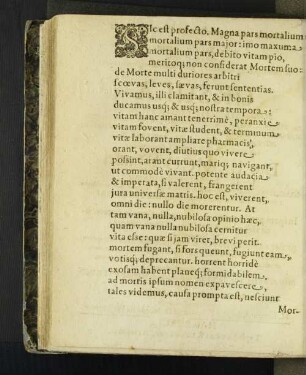 SIc est profecto. Magna pars mortalium
mortalium pars major: imo maxuma
mortalium pars, debito vitam pio,
meritoq; non considerat Mortem suo:
de Morte multi duriores arbitri
scœvas, leves, sævas, ferunt sententias.
Vivamus, illi clamitant, & in bonis
ducamus usq; & usq; nostra tempora:
vitam hanc amant tenerrimè, peranxiè
vitam fovent, vitæ student, & terminum
vitæ laborant ampliare pharmacis,
orant, vovent, diutius quo vivere
possint, arant currunt, mariq; navigant,
ut commodè vivant. potente audacia
& imperata, si valerent, frangerent
jura universæ matris. hoc est, viverent,
omni die: nullo die morerentur. At
tam vana, nulla, nubilosa opinio hæc,
quam vana nulla nubilosa cernitur
vita esse: quæ si jam viret, brevi perit.
mortem fugant, si fors queunt, fugiunt eam
votisq; deprecantur. horrent horridè
exosam habent planeq; formidabilem,
ad mortis ipsum nomen expavescere,
tales videmus, causa prompta est, nesciunt
Mor-